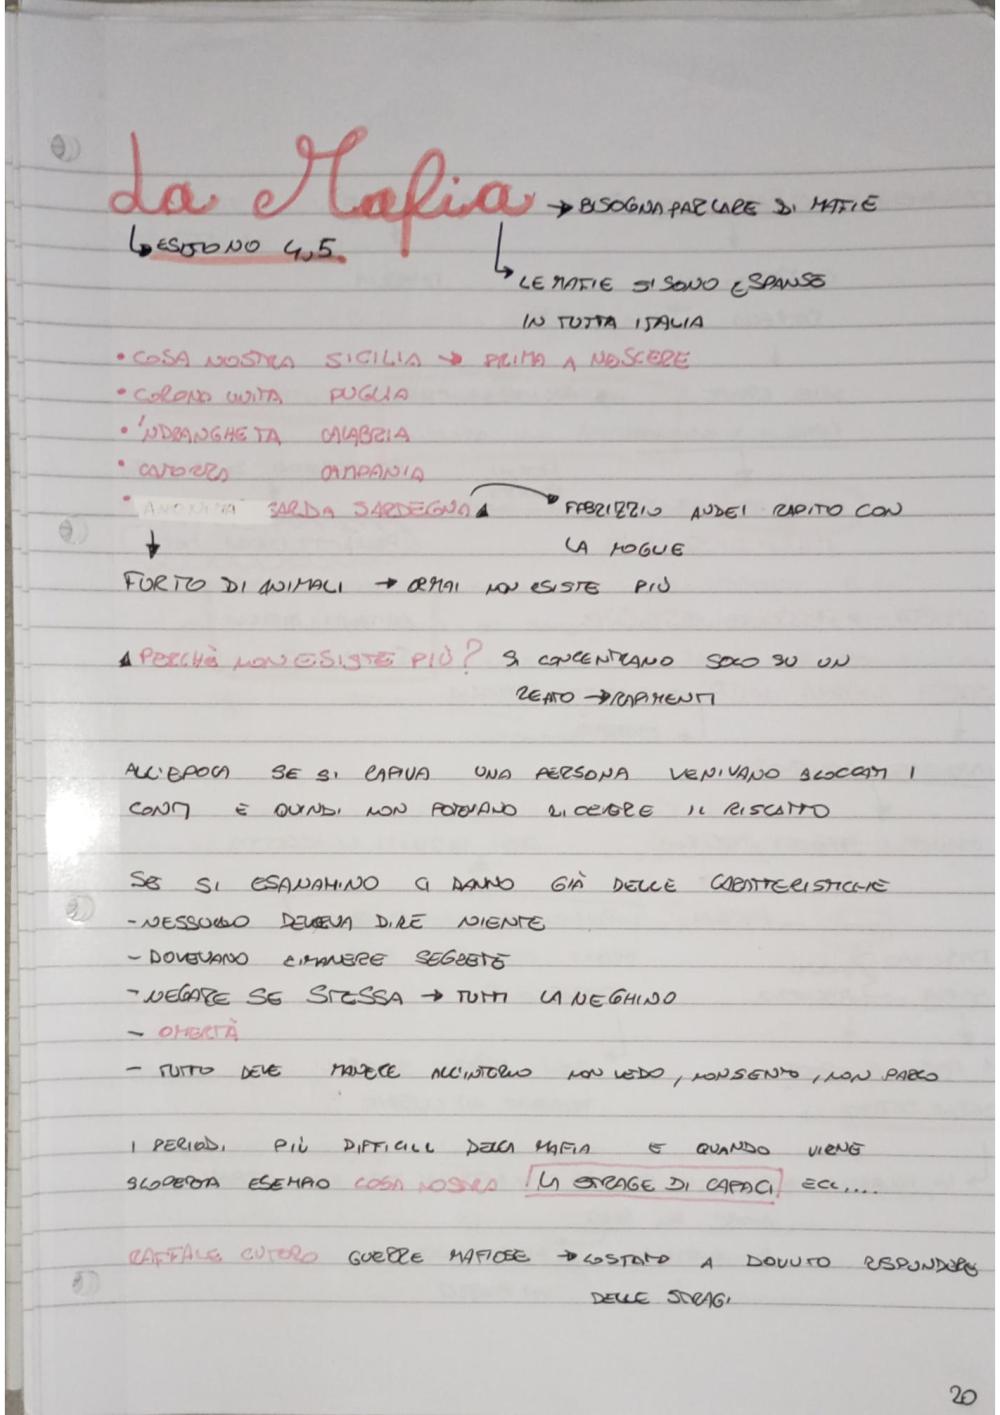 La Mafia → BISOGNA PARLARE DI MAFIE
↳ ESISTONO 4,5.
↳ LE MAFIE SI SONO ESPANSE
IN TUTTA ITALIA
• COSA NOSTRA SICILIA → PRIMA A NOSCERE
• CORONO UNITA PUGLIA
• 'NDRANGHETA CALABRIA
• CAMORRA CAMPANIA
• ANONIMA SARDA SARDEGNA ▲ → FABRIZZIO ANDEI RAPITO CON
LA MOGLIE
↓
FURTO DI ANIMALI → ORMAI NON ESISTE PIÙ
▲ PERCHÈ NON ESISTE PIÙ? SI CONCENTRANO SOLO SU UN
REATO → RAPIMENTI
ALL'EPOCA SE SI RAPIVA UNA PERSONA VENIVANO BLOCCATI I
CONTI E QUINDI NON POTEVANO RICEVERE IL RISCATTO
SE SI ESANAMINO CI DANNO GIÀ DELLE CARATTERISTICHE
- NESSUNO DEVEVA DIRE NIENTE
- DOVEVANO RIMANERE SEGRETE
- NEGARE SE STESSA → TUTTI LA NEGHINO
- OMERTÀ
- TUTTO DEVE MANERE ALL'INTERNO NON VEDO, NON SENTO, NON PARLO
I PERIODI PIÙ DIFFICILI DELLA MAFIA E QUANDO VIENE
SCOPERTA ESEMPIO COSA NOSTRA LA STRAGE DI CAPACI ECC....
RAFFALE CUTORO GUERRE MAFIOSE → COSTATO A DOVUTO RESPONDERE
DELLE STRAGI
20